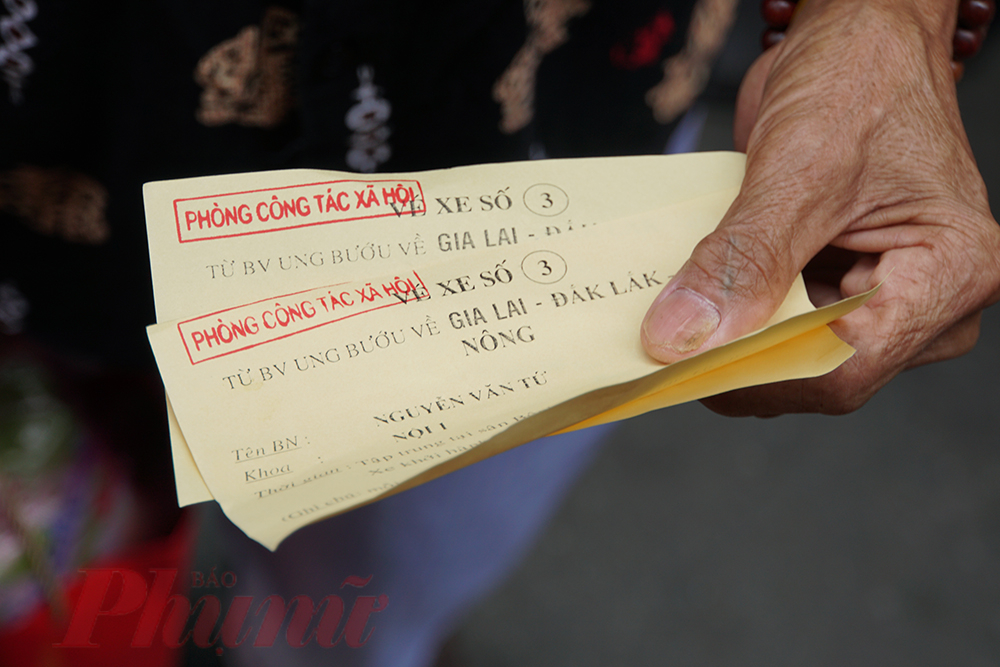 PHÒNG CÔNG TÁC XÃ HỘI VÉ XE SỐ 3
TỪ BV UNG BƯỚU VỀ GIA LAI -
PHÒNG CÔNG TÁC XÃ HỘI VÉ XE SỐ 3
TỪ BV UNG BƯỚU VỀ GIA LAI - ĐĂK LĂK -
NÔNG
NGUYỄN VĂN TỨ
Tên BN :
NỘI 1
Khoa :
Thời gian : Tập trung tại sân
Xe khởi
(Ghi chú:
BÁO
Phụ nữ